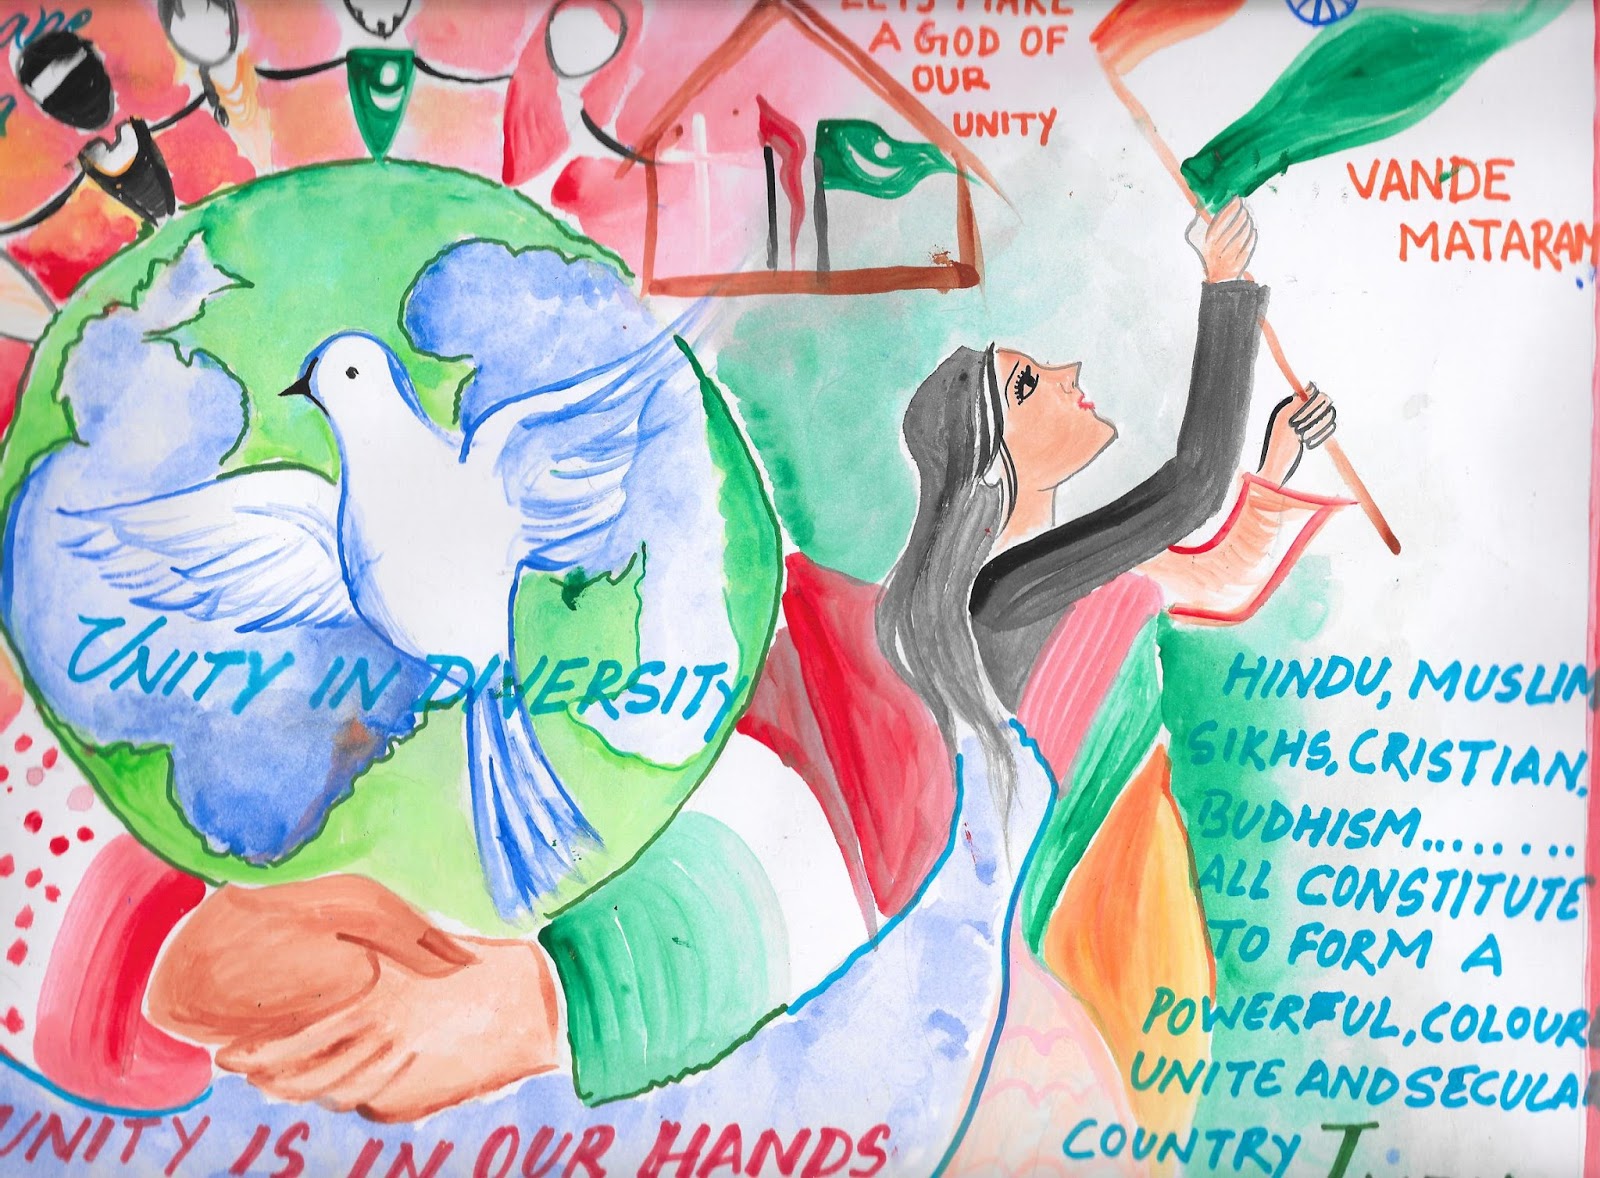 LETS MAKE
A GOD OF
OUR
UNITY
VANDE
MATARAM
UNITY IN DIVERSITY
HINDU, MUSLIM
SIKHS, CRISTIAN,
BUDHISM........
ALL CONSTITUTE
TO FORM A
POWERFUL, COLOUR
UNITE AND SECULAR
COUNTRY
UNITY IS IN OUR HANDS